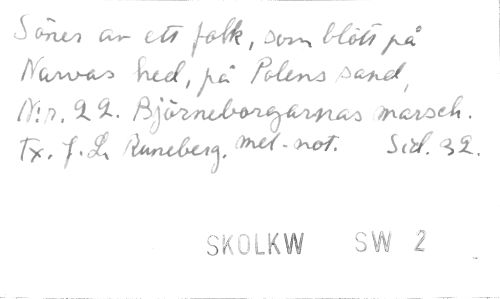 Söner av ett folk, som blött på
Narvas hed, på Polens sand,
N:r. 22. Björneborgarnas marsch.
Tx. J. L. Runeberg. mel-not. Sid. 32.
SKOLKW SW 2